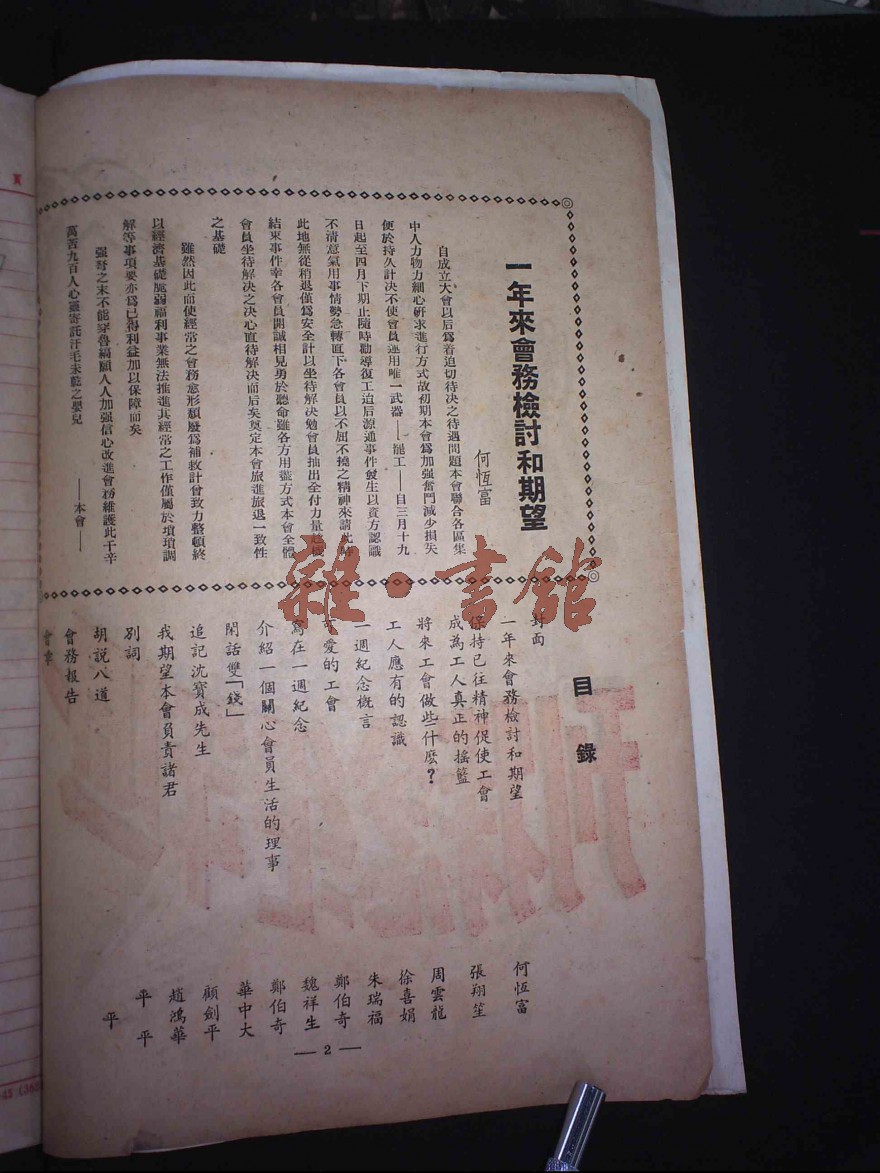 一年來會務檢討和期望
何恆富
自成立大會以后爲着迫切待决之待遇問題本會聯合各區集
中人力物力細心研求進行方式故初期本會爲加强奮鬥減少損失
便於持久計决不使會員運用唯一武器——罷工——自三月十九
日起至四月下期止隨時勸導復工迨后源通事件發生以資方認識
不清意氣用事情勢急轉直下各會員以不屈不撓之精神來請此時
此地無從稍退僅爲安全計以坐待解决勉會員抽出全付力量
結束事件幸各會員開誠相見勇於聽命雖各方用盡方式本會全體
會員坐待解决之决心直待解决而后矣奠定本會旅進旅退一致性
之基礎
雖然因此而使經常之會務愈形頹廢爲補救計曾致力整頓終
以經濟基礎脆弱福利事業無法推進其經常之工作僅屬於瑣瑣調
解等事項要亦爲已得利益加以保障而矣
强弩之末不能穿魯縞願人人加强信心改進會務維護此千辛
萬苦九百人心靈寄託汗毛未乾之嬰兒
——本會——
目錄
封面
一年來會務檢討和期望 何恆富
保持已往精神促使工會
成為工人真正的搖籃 張翔笙
將來工會做些什麽？ 周雲龍
工人應有的認識 徐喜娟
一週紀念概言 朱瑞福
可愛的工會 鄭伯奇
寫在一週紀念 魏祥生
介紹一個關心會員生活的理事 鄭伯奇
閑話雙「錢」 華中大
追記沈寶成先生 顧劍平
我期望本會負責諸君 趙鴻華
別詞 平平
胡說八道 平
會務報告
會章
— 2 —
雜·書館